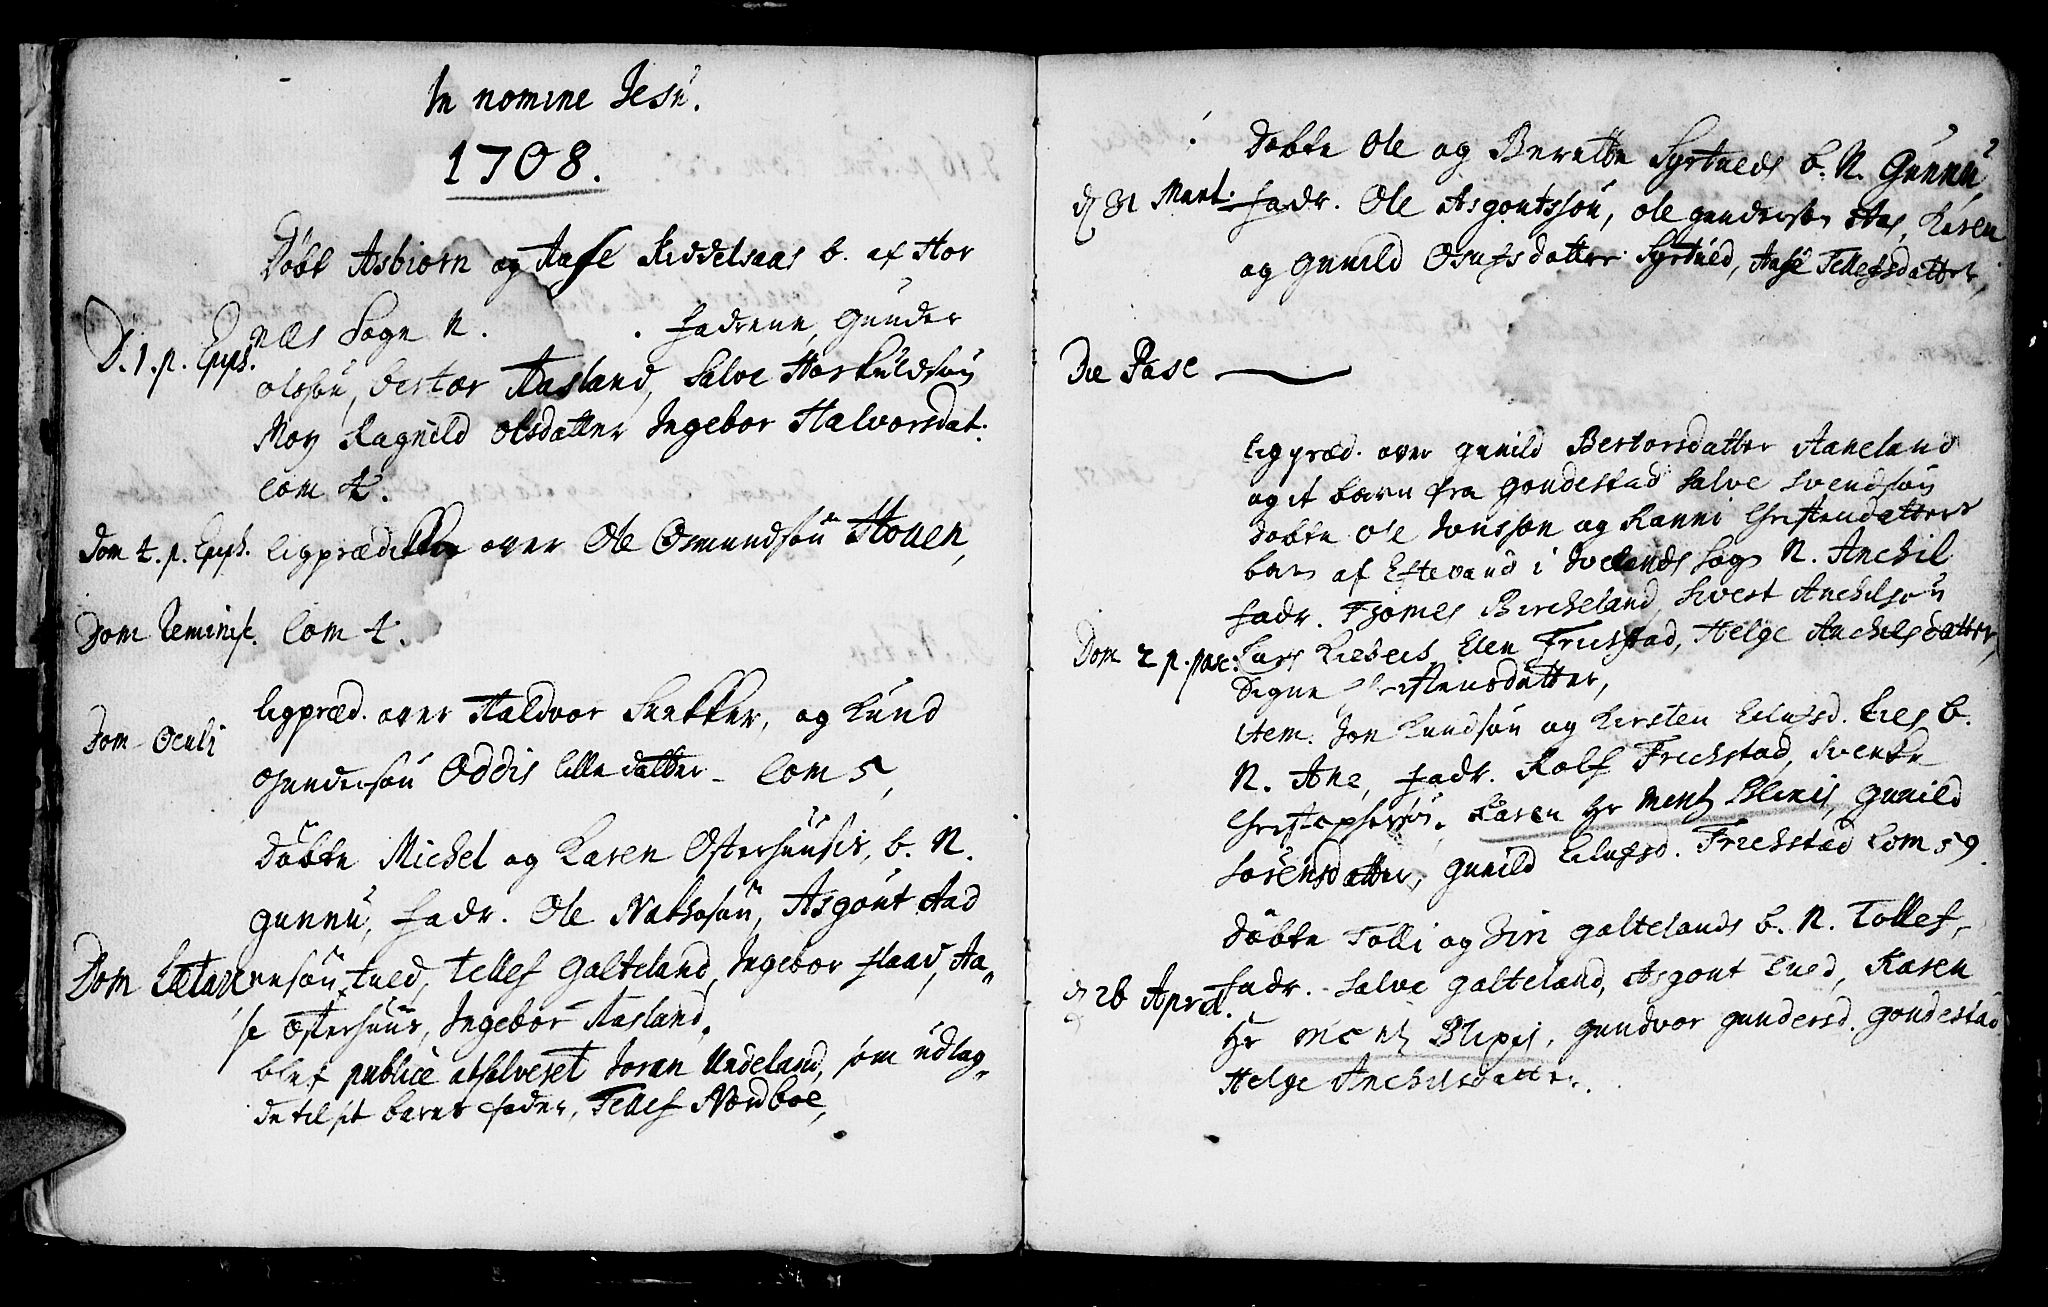 In nomine Jesu.
1708.
Döbt Asbiørn og Aase Reddelsaas b. af Hor
næs Sogn N. . fadrene, Gunder
D. 1. p. Epph.
olssøn, Bertær Aasland, Salve Horskuldsøn
Moy Ragnild olsdatter Ingebor Halvorsdat.
com 4.
Dom 4. p. Epph. ligprædikken over Ole Osmundsøn Houen,
Dom Reminisc. Com 4.
ligpræd. over Haldvor, og Knud
Dom Oculi
Gundersøn Oddis lille datter - Com 5,
Döbte Michel og Karen Osterhuusis, b. N.
gunnu, fadr. Ole Natheson, Asgout Aad
Dom Lætare ensøn tued, Tellef Galteland, Ingebor flaad, Aa„
se Osterhuus, Ingebor Aasland.
blef publice absolveret Joran Undeland, som udlag„
de til sit barns fader, Tellef Nordboe,
Döbte Ole og Berette Syrtueds b. N. Gunnu,
d 31 Mart. fadr. Ole Asgoutsson, ole gunderson Aas, Karen
og Gunild Osufsdatter Syrtued, Aase Tellefsdatter,
Die Pasc
ligpræd. over gunild Bertorsdatter Aaneland
og it barn fra gondestad Salve Svendsøn
Döbte Ole Jonsson og Ranni Christensdatters
barn af Eftevand i Ivelands Sogn N. Anchil
fadr. Thomes Bircheland, Sivert Anchilsøn
Dom 2 p. pasc. Lars Elen Frichstad, Helge Anchelsdatter,
Signe Christensdatter,
Item. Jon Knudsøn og Kirsten Eilufsd. b.
N. Ane, fadr. Rolf Frichstad, Svenke
Christophersøn. Karen Hr Mentz Blixis, gunild
Sørensdatter, gunild Eilufsd. Frichstad Com 59.
Döbte Tolli og Siri galtelands b. N. Tollef,
d 26 April. fadr. Salve galteland, Asgout tued, Karen
Hr Mentz Blixis, gundvor gundersd. gondestad
Helge Anchilsdatter.